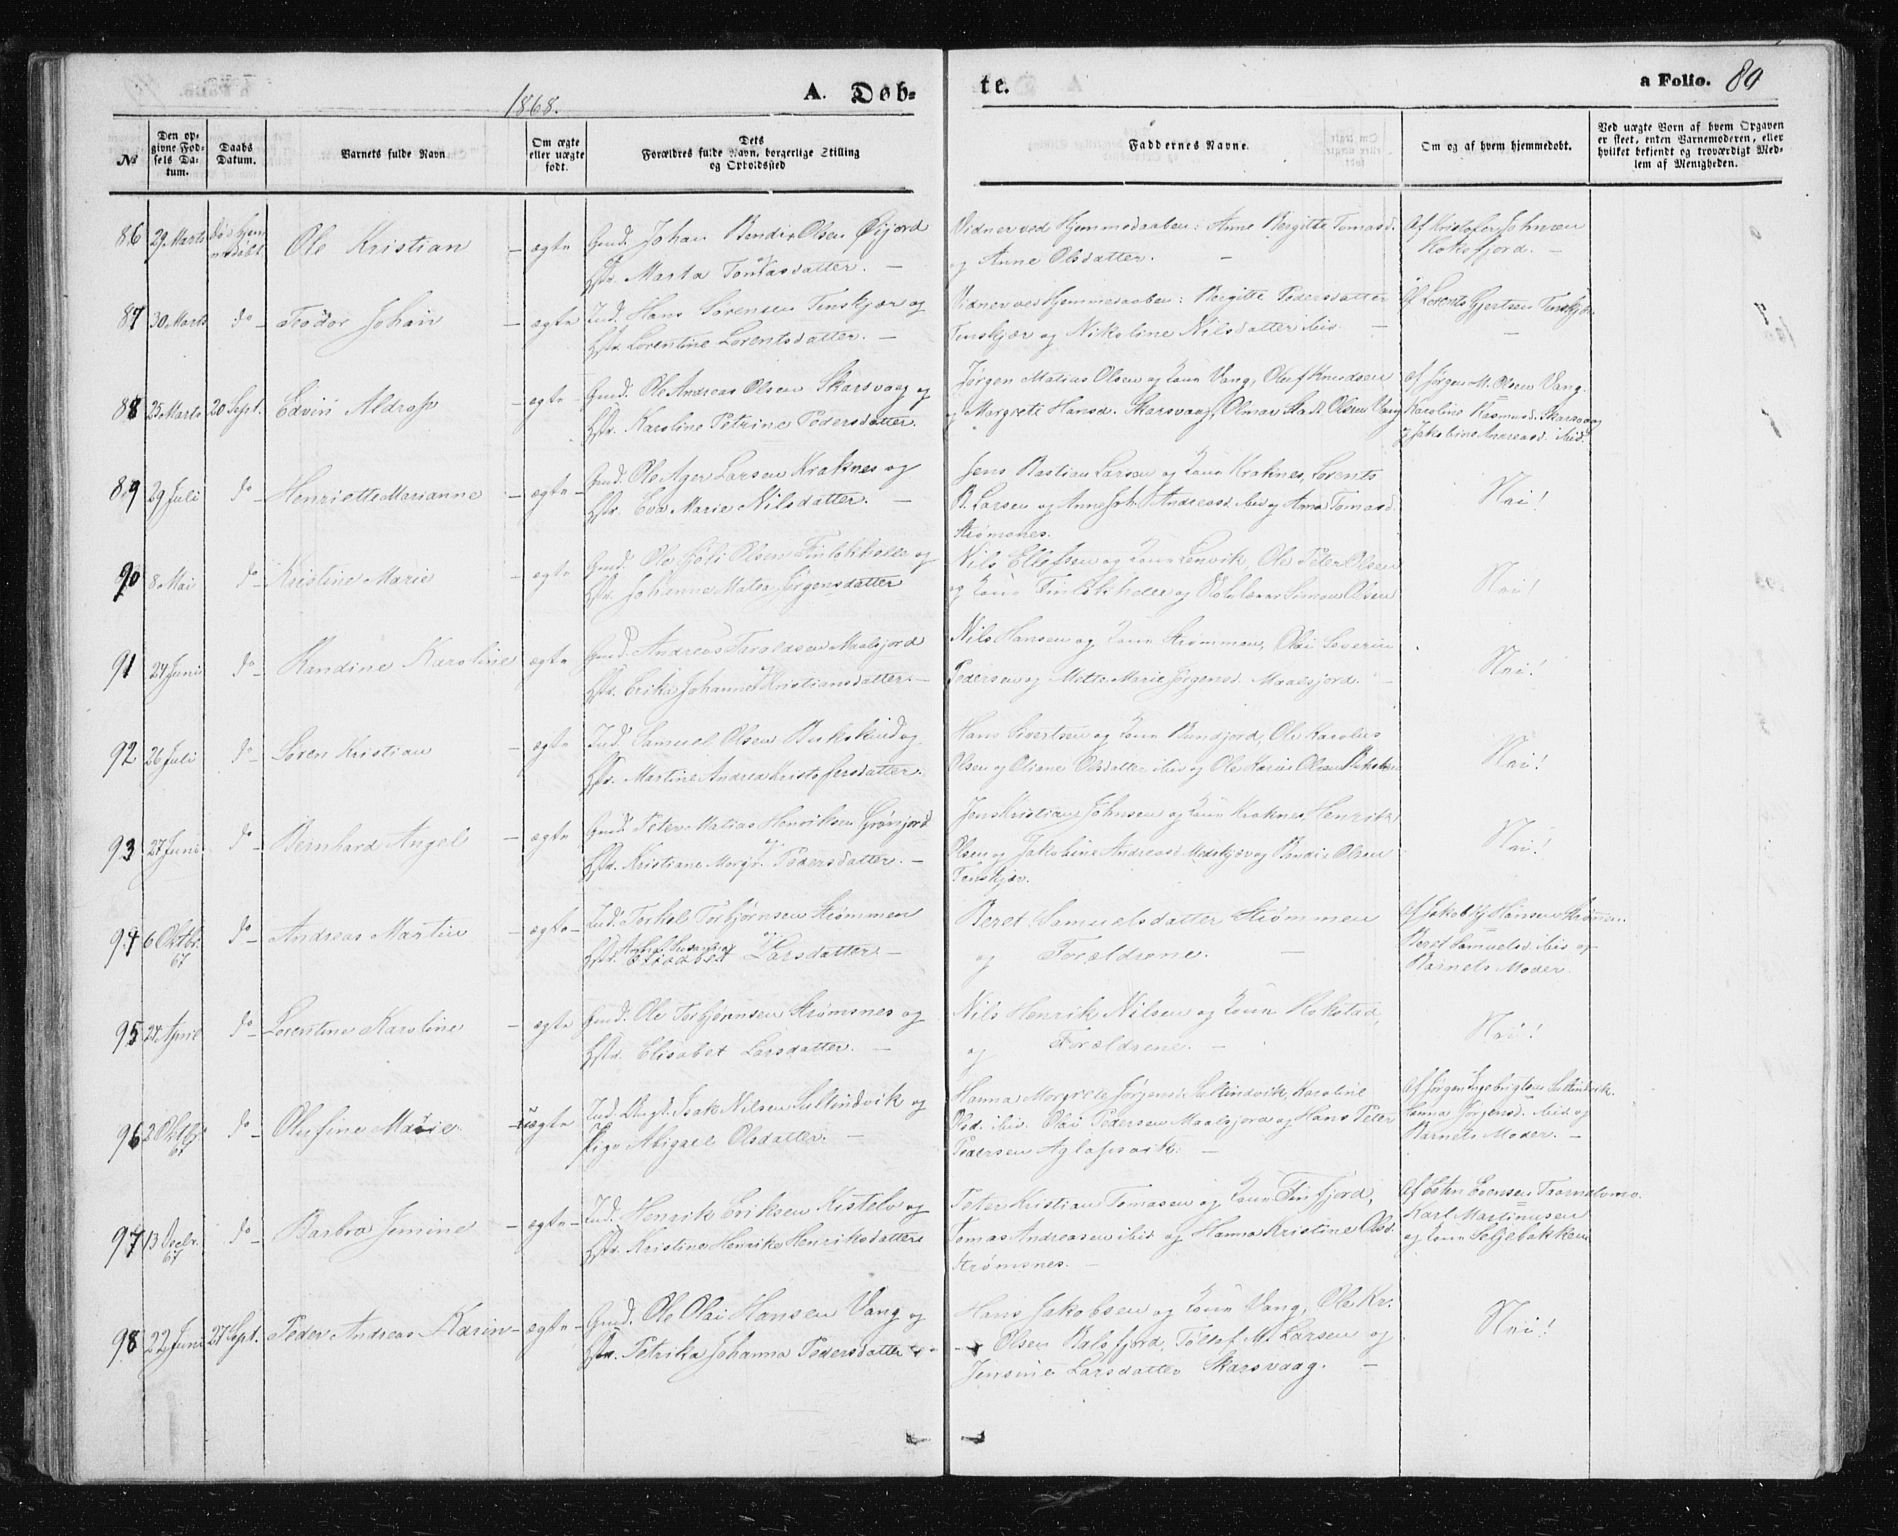 1868.
A. Døb-
te.
a Folio. 80
№
Den op-
givne Fød-
sels Da-
tum.
Daabs
Datum.
Barnets fulde Navn.
Om ægte
eller uægte
født.
Dets
Forældres fulde Navn, borgerlige Stilling
og Opholdssted
Faddernes Navne.
Om og af hvem hjemmedøbt.
Ved uægte Børn af hvem Opgaven
er skeet, enten Barnemoderen, eller
hvilket bekjendt og troværdigt Med-
lem af Menigheden.
86 29 Marts Ole Kristian – ægte
Gmd. Johan Bendix Olsen Øijord
og
Hstr. Marta Tomasdatter. –
Vidner ved Hjemmedaaben: Anne Bergitte Tomasd.
og Anne Olsdatter. –
Af Kristofer Johnsen
Roksfjord. –
87 30 Marts do – Feodor Johan – ægte
Ind. Hans Sørensen Tenskjær og
Hstr. Lorentine Lorentsdatter. –
Vidner ved Hjemmedaaben: Bergitte Pedersdatter
Tenskjær og Nikoline Nilsdatter ibid. –
Af Lorents Gjertsen Tenskjær
–
88 25 Marts 20 Sept. Edvin Aldrop – ægte –
Gmd. Ole Andreas Olsen Skarsvaag og
Hstr. Karoline Petrine Pedersdatter.
Jørgen Matias Olsen og Kone Vang, Oluf Knudsen
og Margrete Hansd. Skarsvaag, Olmar Olsen Vang
Af Jørgen M. Olsen Vang.
Karoline Rasmusd. Skarsvaag
og Jakobine Andreasd. ibid.
89 29 Juli do Henriette Marianne – ægte –
Gmd. Ole Ager Larsen Kraknes og
Hstr. Eva Marie Nilsdatter. –
Jens Bastian Larsen og Kone Kraknes, Lorents
B. Larsen og Anne Joh. Andreasd. ibid og Anna Tomasd.
Strømsnes.
Nei!
90 8 Mai do – Kristine Marie – ægte
Gmd. Ole Olsen Finlakheller og
Hstr. Johanne Jørgensdatter
Nils Ellefsen og Kone Lenvik, Ole Peter Olsen
og Kone Finlakheller og Simon Olsen
Nei!
91 24 Juni do – Randine Karoline ægte
Gmd. Andreas Taraldsen Maalsjord
og
Hstr. Erika Johanne Kristiansdatter. –
Nils Hansen og Kone Strømmen, Olai Severin
Pedersen og Mette Marie Jørgensd. Maalsjord. –
Nei!
92 26 Juli do – Søren Kristian – ægte
Ind. Samuel Olsen Bukskind og
Hstr. Martine Andrea Kristofersdatter.
Hans Sivertsen og Kone Bundjord, Ole Karolius
Olsen og Eliane Olsdatter ibid og Ole Karius Olsen
Nei!
93 27 Juni do – Bernhard Angel – ægte
Gmd. Peter Matias Henriksen Grønjord
og
Hstr. Kristiane Margr. Pedersdatter. –
Jens Kristian Johnsen og Kone Kraknes, Henrik
Olsen og Jakobine Andreasd. og Olsen
Tenskjær.
Nei!
94 6 Oktbr. do – Andreas Martin – ægte –
67
Ind. Torkel Torbjørnsen Strømmen
og
Hstr. Elisabet Larsdatter –
Beret Samuelsdatter Strømmen
og Forældrene. –
Af Jakob Hj. Hansen
Beret Samuelsd. ibid og
Barnets Moder.
95 24 April do – Lorentine Karoline – ægte
Gmd. Ole Torbjørnsen Strømsnes og
Hstr. Elisabet Larsdatter. –
Nils Henrik Nilsen og Kone Rokstad,
og Forældrene. –
Nei!
96 2 Oktbr. do – Olufine Marie – uægte
67
Ind. Ungk. Isak Nilsen Sultindvik og
Pige Abigael Olsdatter. –
Hanna Morgrete Jørgensd. Sultindvik, Karoline
Olsd. ibid. Olai Pedersen Maalsjord og Hans Peter
Pedersen Aglapsvik. –
Af Jørgen Ingebrigtsen Sultindvik.
Hanna Jørgensd. ibid og
Barnets Moder. –
97 13 Decbr. do – Barbra Jemine – ægte –
67
Ind. Henrik Eriksen Kistelv og
Hstr. Kristine Henrike Henriksdatter
Peter Kristian Tomasen og Kone Finfjord,
Tomas Andreasen ibid og Hanna Kristine Olsd.
Strømsnes. –
Af Esten Evensen
Karl Martinusen
og Kone Seljebakken
98 22 Juni 27 Sept. Peder Andreas Karin – ægte –
Gmd. Ole Olai Hansen Vang og
Hstr. Petrika Johanna Pedersdatter –
Hans Jakobsen og Kone Vang, Ole Kr.
Olsen Balsfjord, Tollef M. Larsen og
Jensine Larsdatter Skarsvaag. –
Nei!